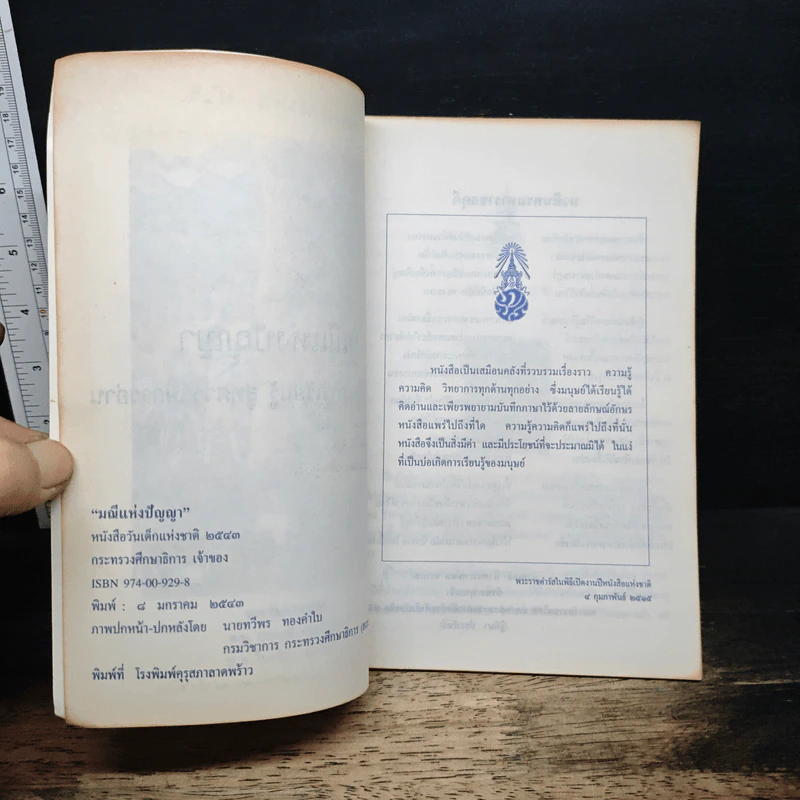 “มณีแห่งปัญญา”
หนังสือวันเด็กแห่งชาติ ๒๕๔๓
กระทรวงศึกษาธิการ เจ้าของ
ISBN 974-00-929-8
พิมพ์ : ๘ มกราคม ๒๕๔๓
ภาพปกหน้า-ปกหลังโดย นายทวีพร ทองคำใบ
กรมวิชาการ กระทรวงศึกษาธิการ
พิมพ์ที่ โรงพิมพ์คุรุสภาลาดพร้าว
หนังสือเป็นเสมือนคลังที่รวบรวมเรื่องราว ความรู้
ความคิด วิทยาการทุกด้านทุกอย่าง ซึ่งมนุษย์ได้เรียนรู้ได้
คิดอ่านและเพียรพยายามบันทึกภาษาไว้ด้วยลายลักษณ์อักษร
หนังสือแพร่ไปถึงที่ใด ความรู้ความคิดก็แพร่ไปถึงที่นั่น
หนังสือจึงเป็นสิ่งมีค่า และมีประโยชน์ที่จะประมาณมิได้ ในแง่
ที่เป็นบ่อเกิดการเรียนรู้ของมนุษย์
พระราชดำรัสในพิธีเปิดงานปีหนังสือแห่งชาติ
๔ กุมภาพันธ์ ๒๕๑๕
19
18
17
16
15
14
13
12
11
10
9
6
5
4
3